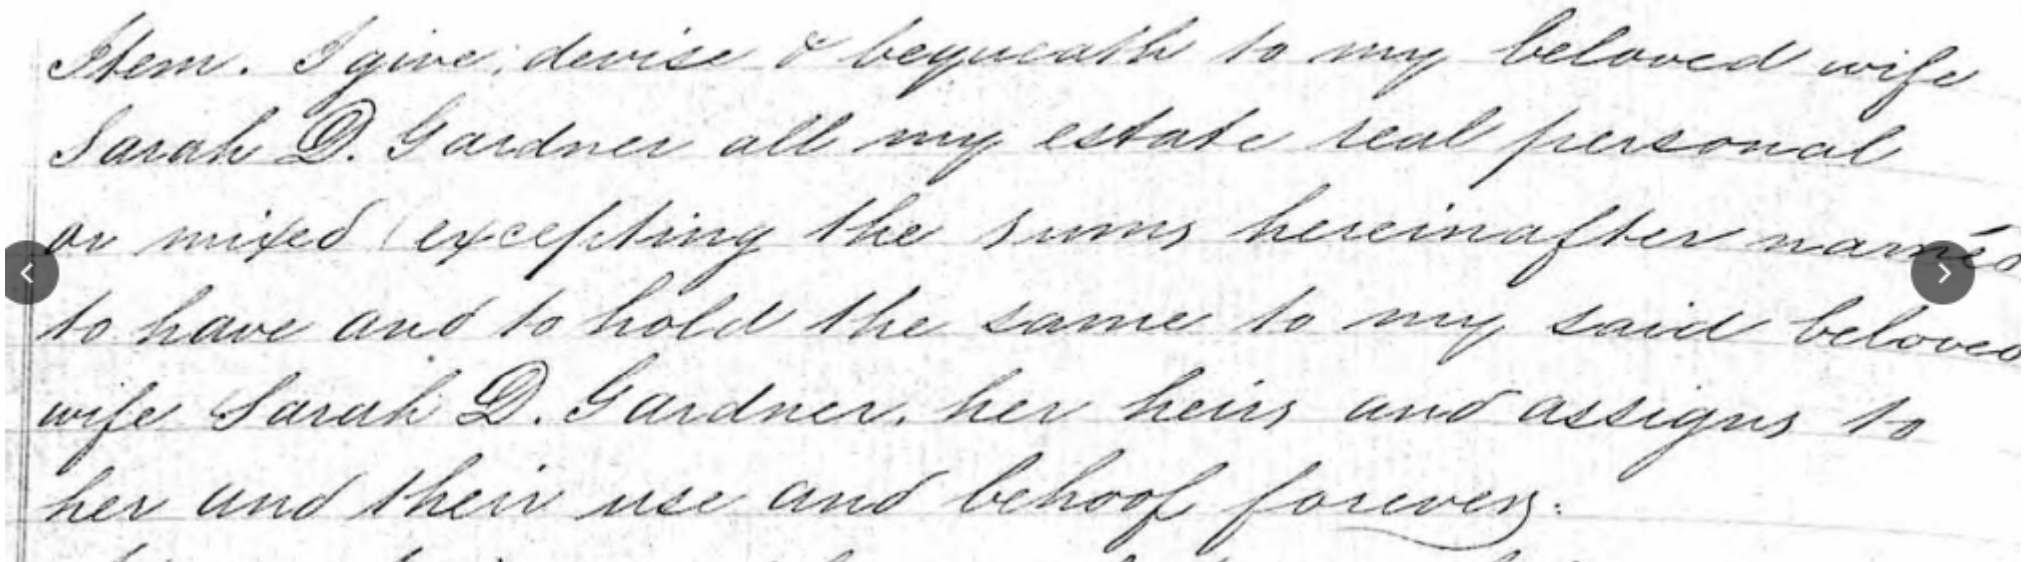 Item. I give, devise & bequeath to my beloved wife
Sarah D. Gardner all my estate real personal
or mixed (excepting the sums hereinafter named
to have and to hold the same to my said beloved
wife Sarah D. Gardner, her heirs and assigns to
her and their use and behoof forever.